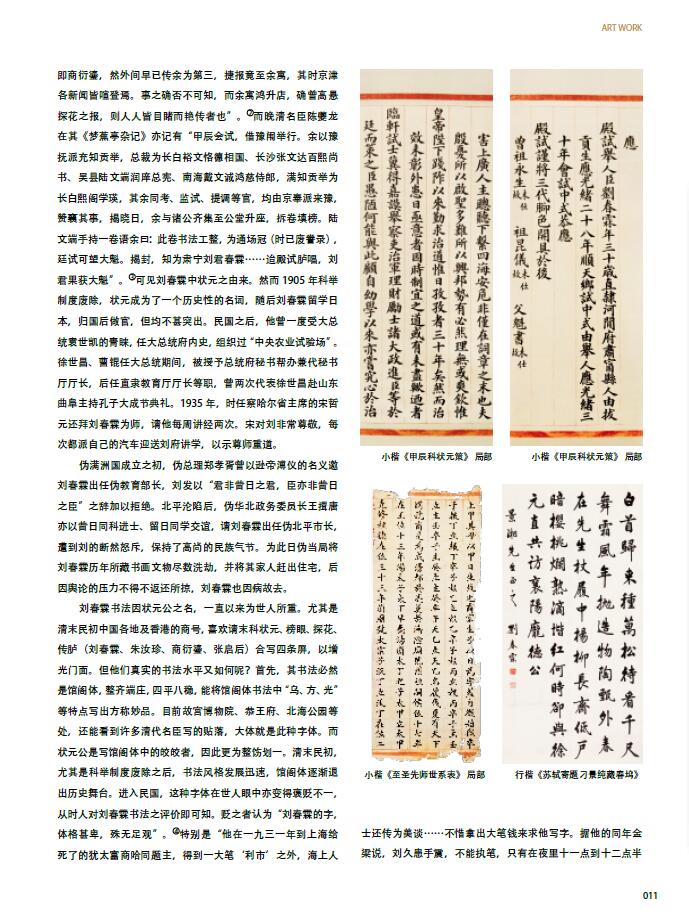 ART WORK
即商衍鎏，然外间早已传余为第三，捷报竟至余寓，其时京津
各新闻皆喧登焉。事之确否不可知，而余寓鸿升店，确曾高悬
探花之报，则人人皆目睹而艳传者也”。⑦而晚清名臣陈夔龙
在其《梦蕉亭杂记》亦记有“甲辰会试，借豫闱举行。余以豫
抚派充知贡举，总裁为长白裕文恪德相国、长沙张文达百熙尚
书、吴县陆文端润庠总宪、南海戴文诚鸿慈侍郎，满知贡举为
长白熙阁学瑛，其余同考、监试、提调等官，均由京奉派来豫，
赞襄其事，揭晓日，余与诸公齐集至公堂升座，拆卷填榜。陆
文端手持一卷语余曰：此卷书法工整，为通场冠（时已废誊录），
廷试可望大魁。揭封，知为肃宁刘君春霖……迨殿试胪唱，刘
君果获大魁”。③可见刘春霖中状元之由来。然而 1905 年科举
制度废除，状元成为了一个历史性的名词，随后刘春霖留学日
本，归国后做官，但均不甚突出。民国之后，他曾一度受大总
统袁世凯的青睐，任大总统府内史，组织过“中央农业试验场”。
徐世昌、曹锟任大总统期间，被授予总统府秘书帮办兼代秘书
厅厅长，后任直隶教育厅厅长等职，曾两次代表徐世昌赴山东
曲阜主持孔子大成节典礼。1935 年，时任察哈尔省主席的宋哲
元还拜刘春霖为师，请他每周讲经两次。宋对刘非常尊敬，每
次都派自己的汽车迎送刘府讲学，以示尊师重道。
伪满洲国成立之初，伪总理郑孝胥曾以逊帝溥仪的名义邀
刘春霖出任伪教育部长，刘发以“君非昔日之君，臣亦非昔日
之臣”之辞加以拒绝。北平沦陷后，伪华北政务委员长王揖唐
亦以昔日同科进士、留日同学交谊，请刘春霖出任伪北平市长，
遭到刘的断然怒斥，保持了高尚的民族气节。为此日伪当局将
刘春霖历年所藏书画文物尽数洗劫，并将其家人赶出住宅，后
因舆论的压力不得不返还所掠，刘春霖也因病故去。
刘春霖书法因状元公之名，一直以来为世人所重。尤其是
清末民初中国各地及香港的商号，喜欢请末科状元、榜眼、探花、
传胪（刘春霖、朱汝珍、商衍鎏、张启后）合写四条屏，以增
光门面。但他们真实的书法水平又如何呢？首先，其书法必然
是馆阁体，整齐端庄，四平八稳，能将馆阁体书法中“乌、方、光”
等特点写出方称妙品。目前故宫博物院、恭王府、北海公园等
处，还能看到许多清代名臣写的贴落，大体就是此种字体。而
状元公是写馆阁体中的皎皎者，因此更为整饬划一。清末民初，
尤其是科举制度废除之后，书法风格发展迅速，馆阁体逐渐退
出历史舞台。进入民国，这种字体在世人眼中亦变得褒贬不一，
从时人对刘春霖书法之评价即可知。贬之者认为“刘春霖的字，
体格甚卑，殊无足观”。④特别是“他在一九三一年到上海给
死了的犹太富商哈同题主，得到一大笔‘利市’之外，海上人
害上廣人主聰聽下繫四海安危非僅在詞章之末也夫
殷憂所以啟聖多難所以興邦勢有必然理無或爽欽惟
皇帝陛下踐阼以來勤求治道惟日孜孜者三十年矣然而治
效未彰外患日亟意者因時制宜之道或有未盡歟迺者
臨軒試士冀得嘉謨舉察吏治軍理財勵士諸大政進臣等於
廷而策之臣愚陋何能與此顧自幼學以來亦嘗究心於治
小楷《甲辰科状元策》 局部
應
殿試舉人臣劉春霖年三十歲直隸河間府肅寧縣人由拔
貢生應光緒二十八年順天鄉試中式由舉人應光緒三
十年會試中式恭應
殿試謹將三代腳色開具於後
曾祖永生未仕故 祖昆儀未仕故 父魁書未仕故
小楷《甲辰科状元策》 局部
小楷《至圣先师世系表》 局部
白首歸來種萬松待看千尺
舞霜風年拋造物陶甄外春
在先生杖履中楊柳長齋低戶
暗櫻桃爛熟滴堦紅何時卻與徐
元直共訪襄陽龐德公
景湘先生正之
劉春霖
行楷《苏轼寄题刁景纯藏春坞》
士还传为美谈……不惜拿出大笔钱来求他写字。据他的同年金
梁说，刘久患手震，不能执笔，只有在夜里十一点到十二点半
011